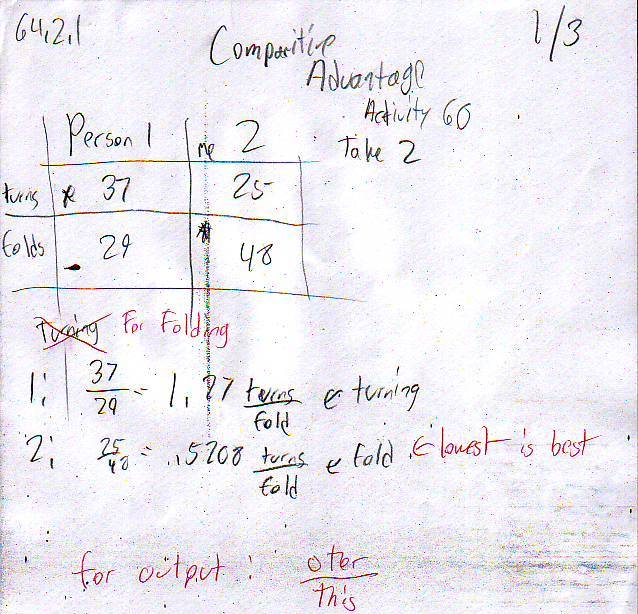 64.2.1
1/3
Comparitive
Advantage
Activity 60
Take 2
Person 1 me 2
turns * 37 25
folds - 29 * 48
Turning For Folding
1: 37/29 = 1.27 turns/fold @ turning
2: 25/48 = .5208 turns/fold @ fold ← lowest is best
for output: oter/this